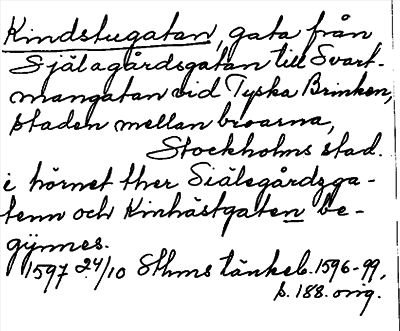 Kindstugatan, gata från
Själagårdsgatan till Svart-
mangatan vid Tyska Brinken,
staden mellan broarna,
Stockholms stad.
i hörnet ther Siälegårdzga-
tenn och Kinhästgaten be-
gÿnnes.
1597 24/10 Sthms tänkeb. 1596-99,
s. 188. orig.